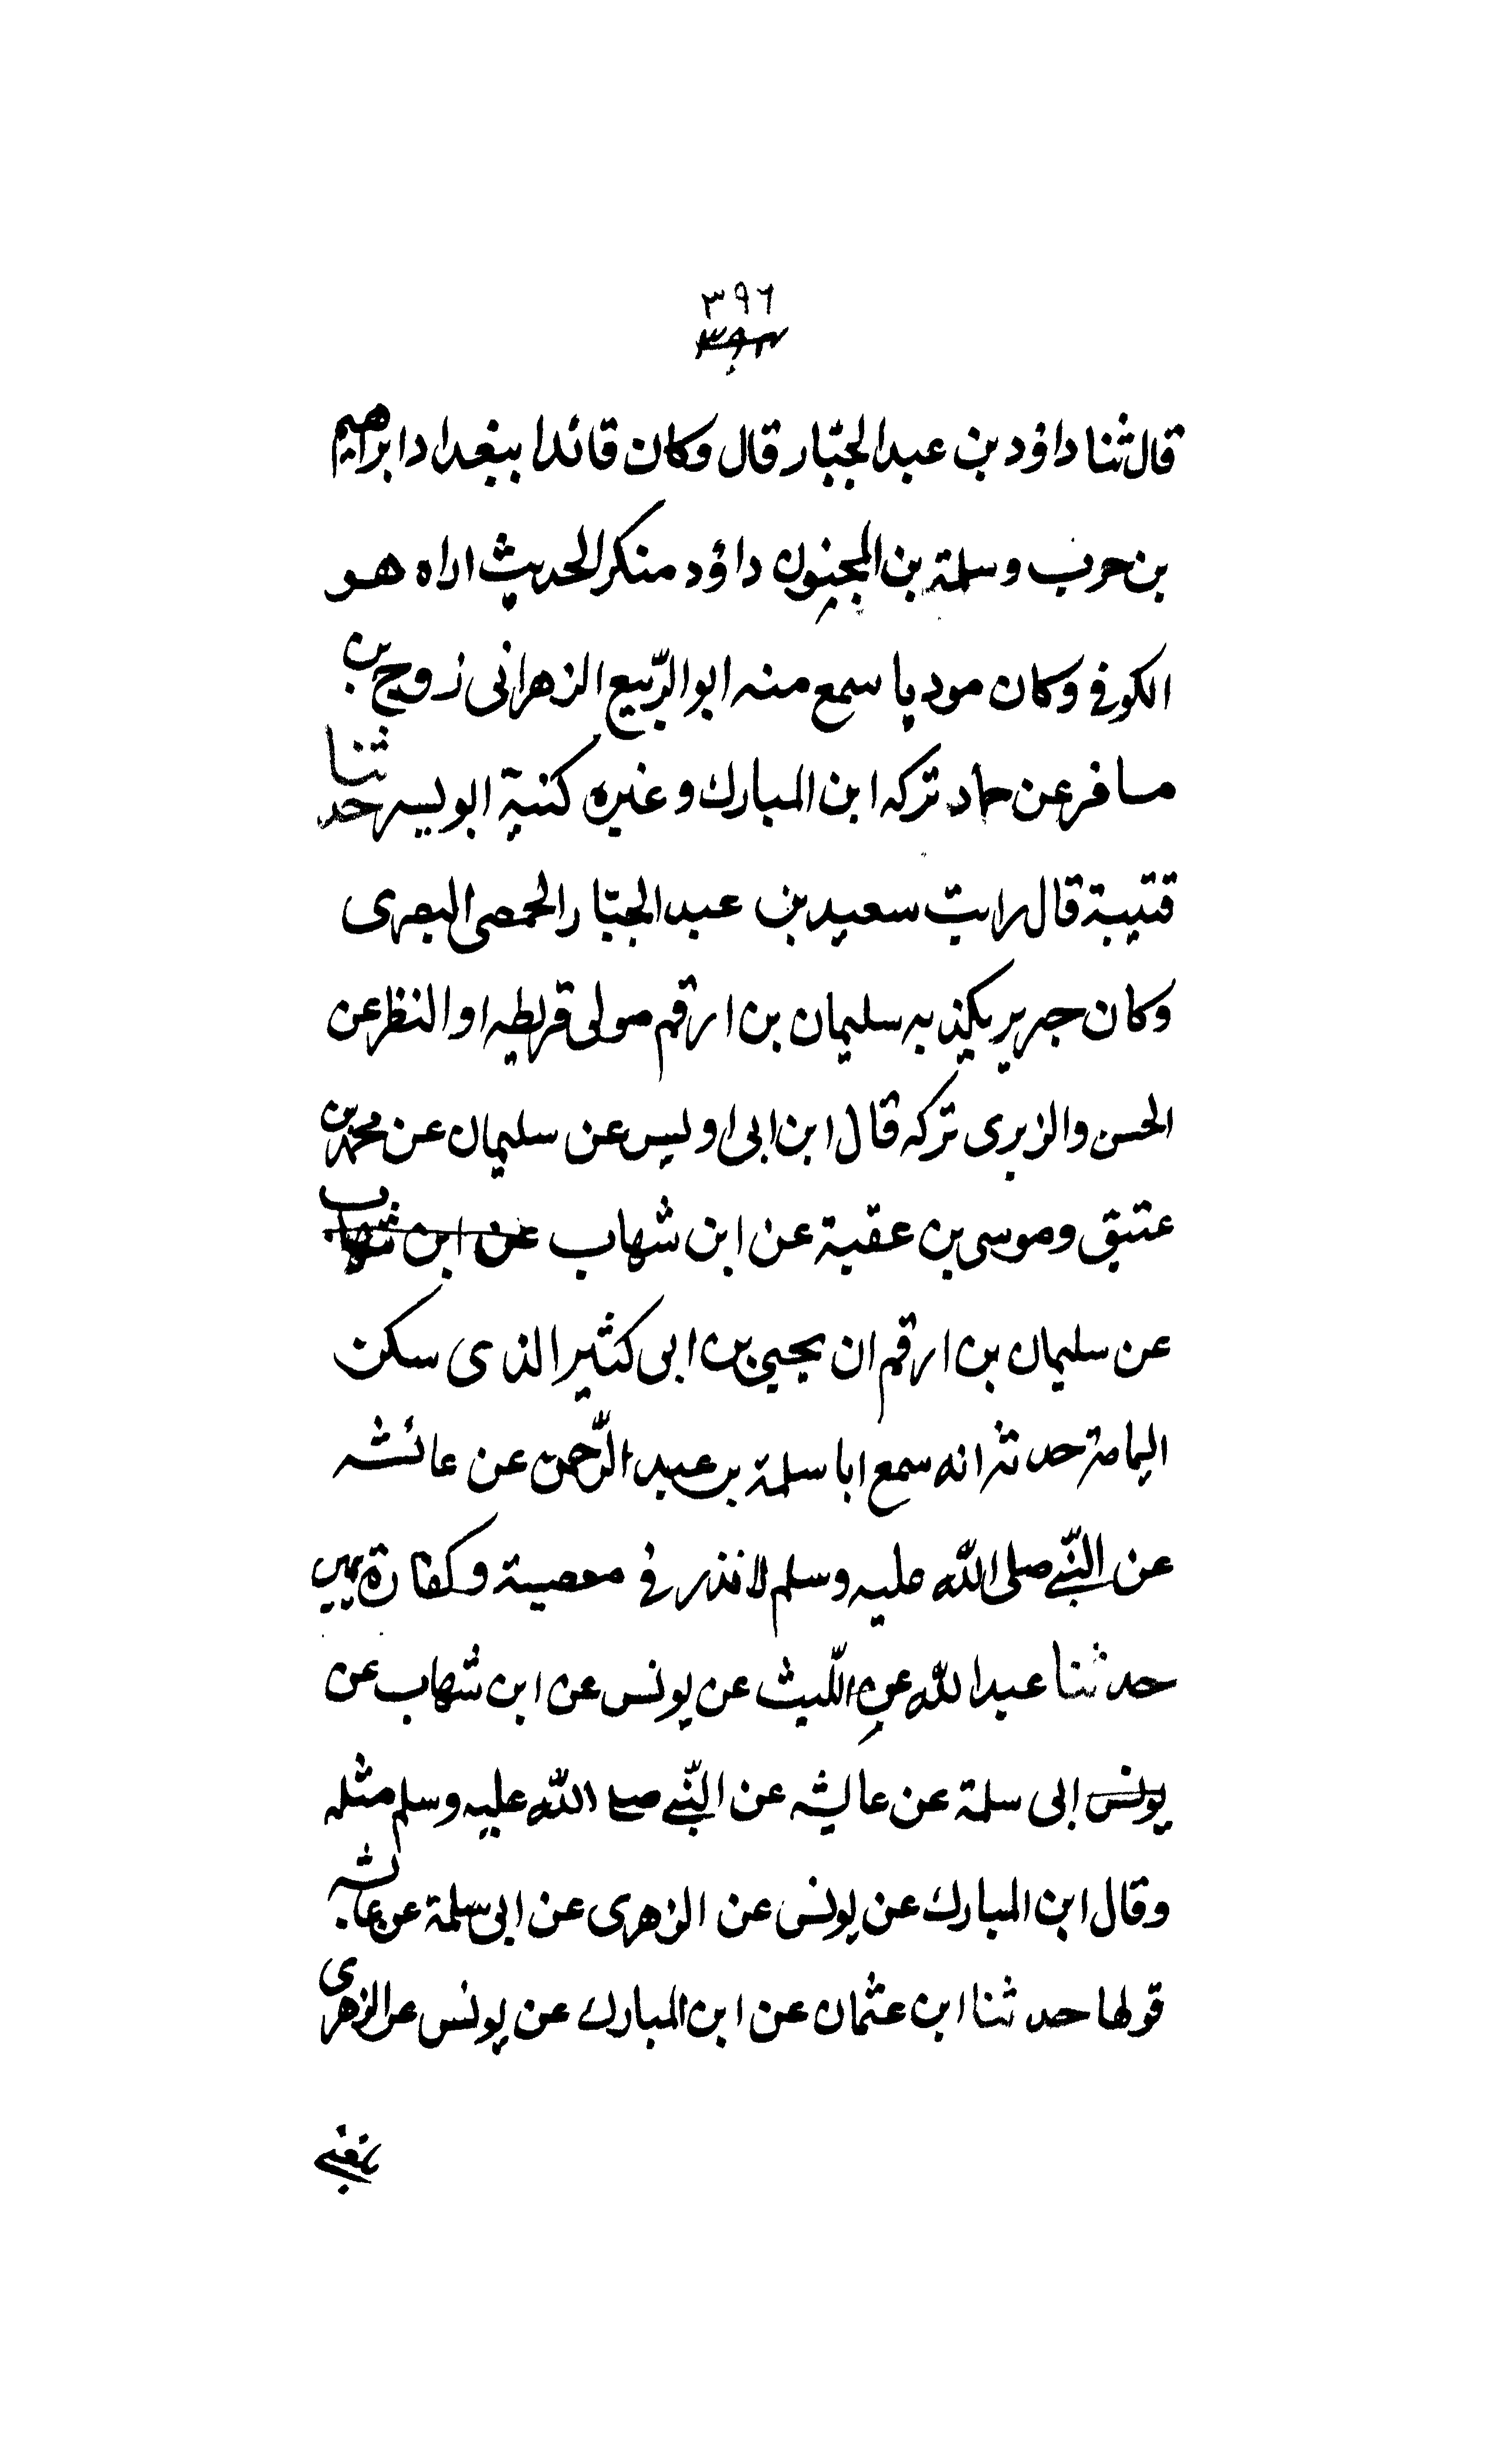 ٣٩٦
قال ثنا داؤد بن عبد الجبّار قال وكان قائدا ببغداد ابراهيم
بن حرب وسلمة بن المجنون داؤد منكر الحديث اراه هو
الكوفى وكان موديا سمع منه ابو الرّبيع الزهرانى زوج بن
مسافر عن حماد تركه ابن المبارك وغيره كنية ابو يسر حدثنا
قتيبة قال رايت سعيد بن عبد الجبّار الحمصى البصرى
وكان جرير يكذبه سليمان بن ارقم مولى قريطه او النظر عن
الحسن والزبرى تركه قال ابن ابى اويس عن سليمان عن محمد بن
عتيق وموسى بن عقبة عن ابن شهاب عن ابن شهاب
عن سليمان بن ارقم ان يحيى بن ابى كثير الذى سكن
اليمامة حدثه انه سمع ابا سلمة بن عبد الرّحمن عن عائشه
عن النّبى صلى الله عليه وسلم لا نذر فى معصية وكفارة يمين
حدثنا عبد الله عن اللّيث عن يونس عن ابن شهاب عن
يونس ابى سلمة عن عايشه عن النّبى صلى الله عليه وسلم مثله
وقال ابن المبارك عن يونس عن الزهرى عن ابى سلمة عن عايشه
قولها حدثنا ابن عثمان عن ابن المبارك عن يونس عن الزهرى